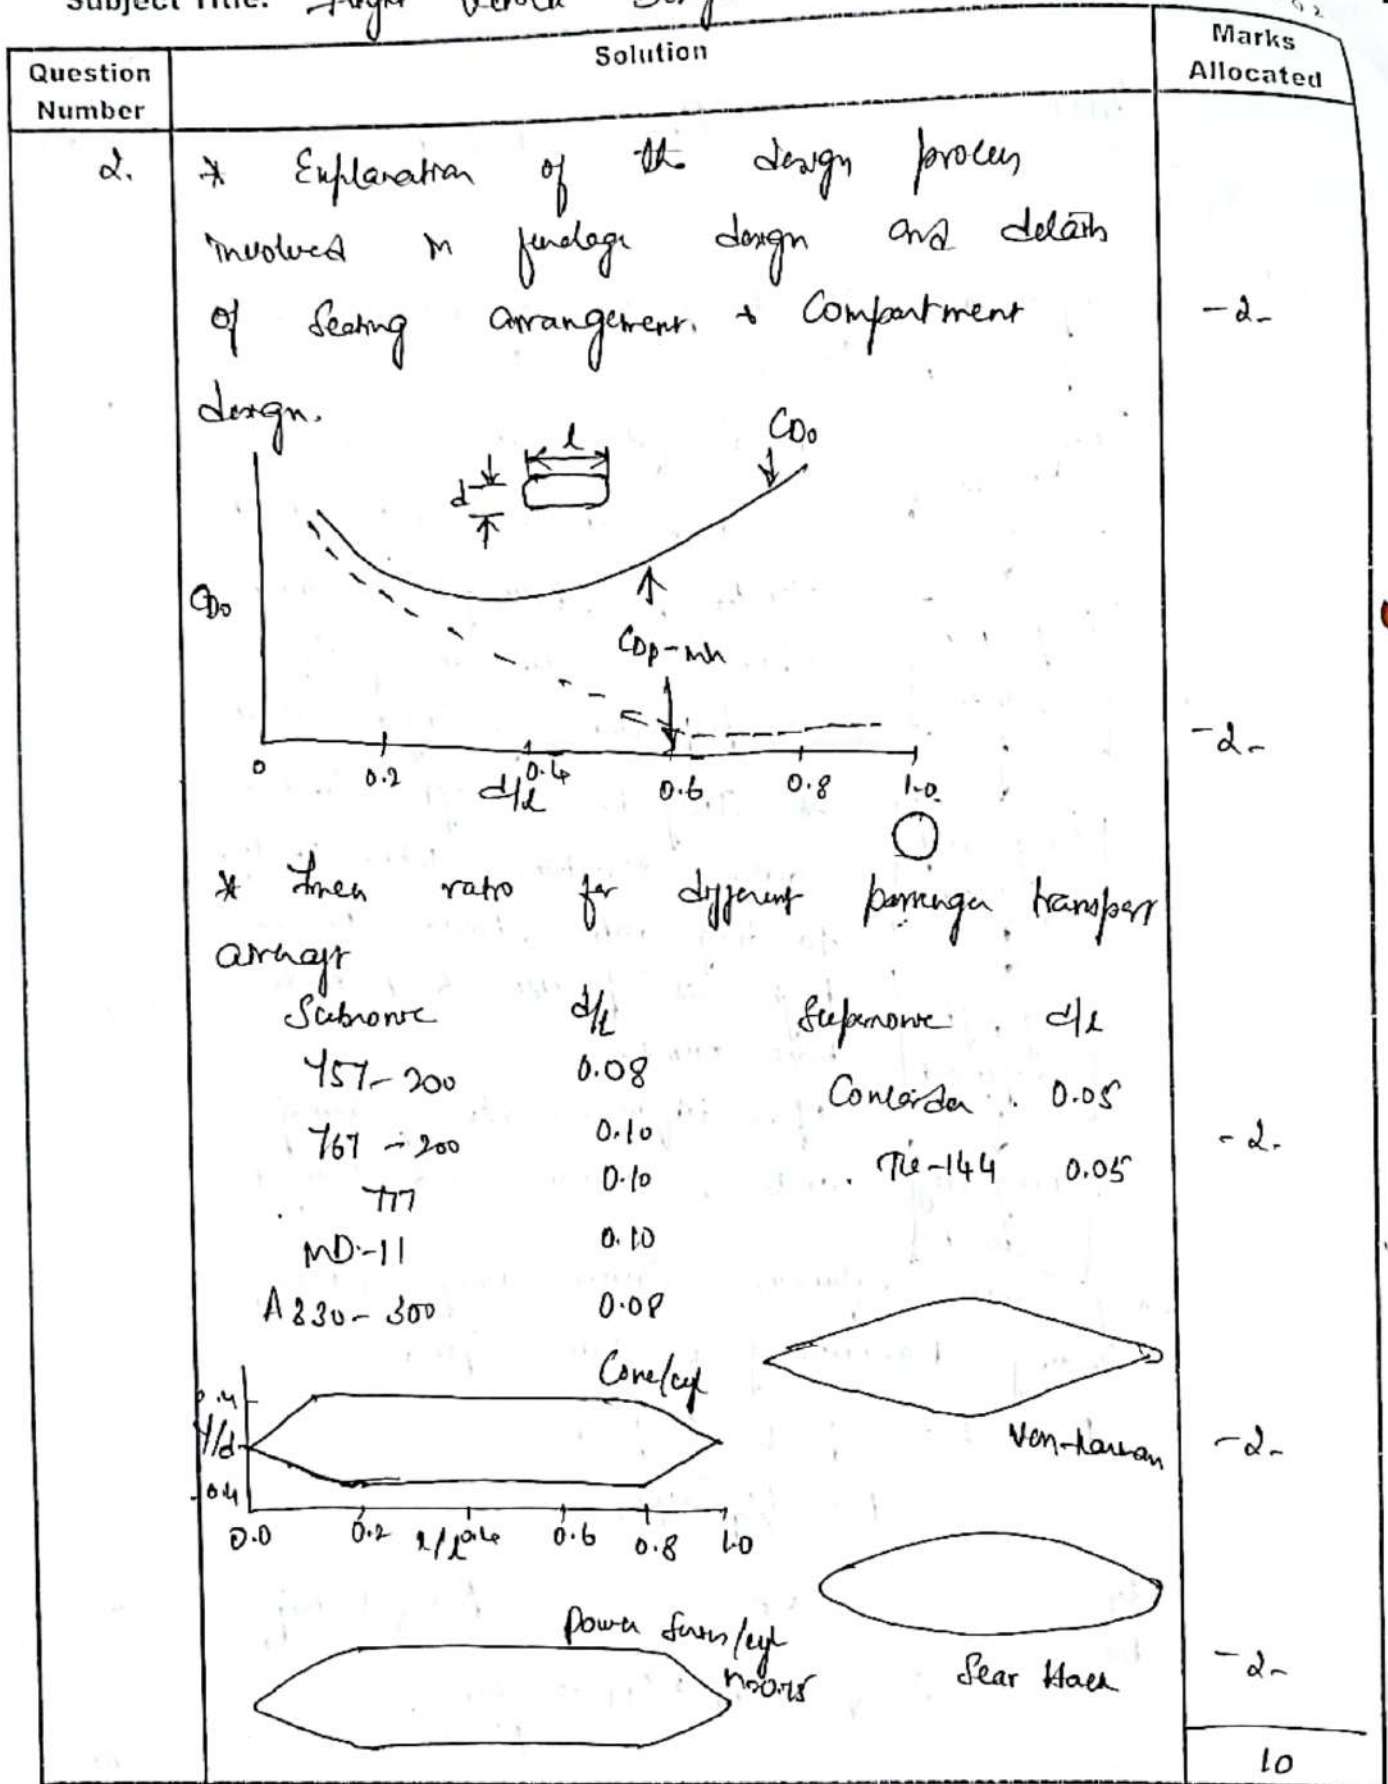 Subject Title: Flight Vehicle Design
Question Number
Solution
Marks Allocated
2.
* Explanation of the design process
involved in fuselage design and details
of Seating arrangement. + Compartment
design.
-2-
CD0
l
d
CD0
CDp-min
0 0.2 0.4 0.6 0.8 1.0
d/l
-2-
* Finess ratio for different passenger transport
aircraft
Subsonic d/l Supersonic d/l
757-200 0.08 Concorde 0.05
767-200 0.10 TU-144 0.05
-2-
777 0.10
MD-11 0.10
A330-300 0.08
Cone/cyl
0.4
Y/d
-0.4
0.0 0.2 0.4 0.6 0.8 1.0
Von-karman
-2-
Power Series/cyl
n=0.75
Sear Hack
-2-
10